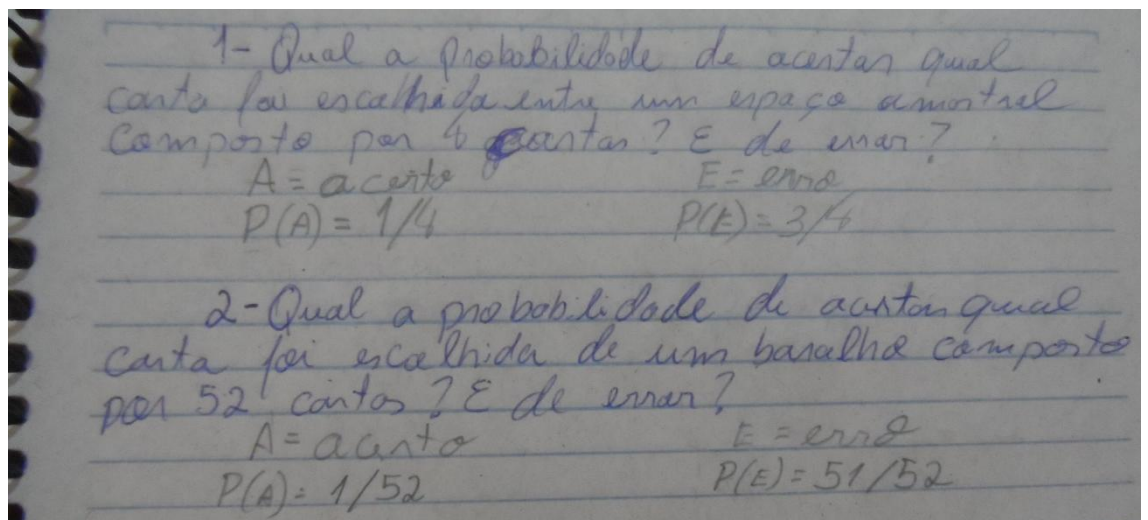 1- Qual a probabilidade de acertar qual
carta foi escolhida entre um espaço amostral
composto por 4 cartas? E de errar?
A = acerto E = erro
P(A) = 1/4 P(E) = 3/4
2- Qual a probabilidade de acertar qual
carta foi escolhida de um baralho composto
por 52 cartas? E de errar?
A = acerto E = erro
P(A) = 1/52 P(E) = 51/52